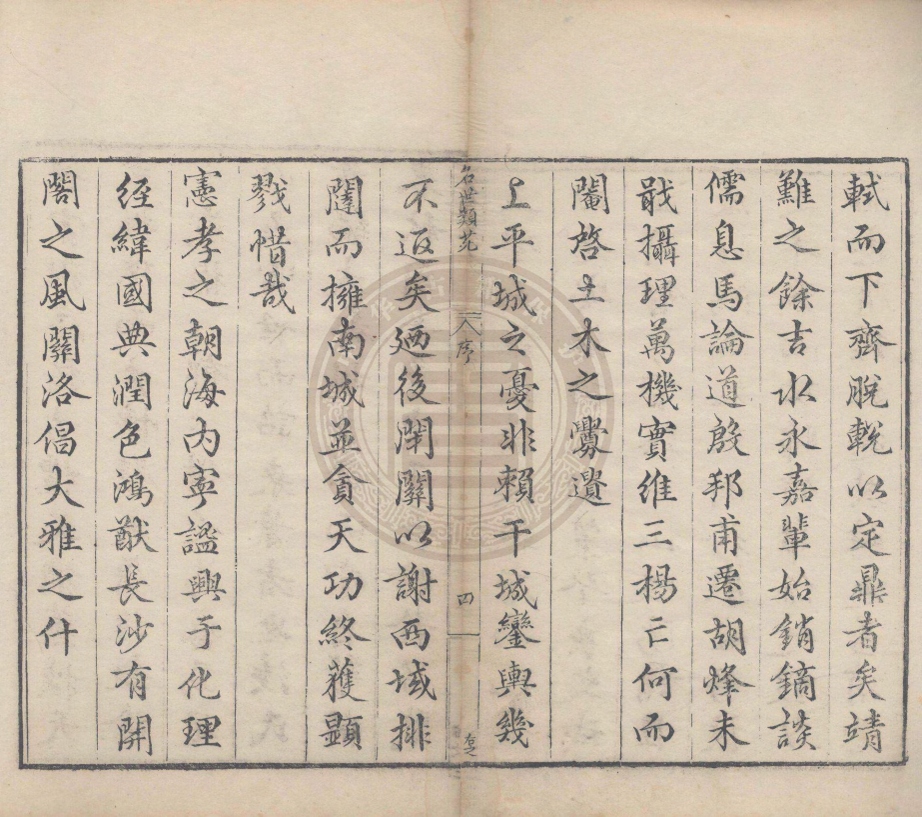 軾而下齊脫輓以定鼎者矣靖
難之餘吉水永嘉輩始銷鏑談
儒息馬論道殷邦甫遷胡烽未
戢攝理萬機實維三楊亡何而
閹啓土木之釁遺
上平城之憂非賴干城鑾輿幾
名世類苑
序
四
不返矣廼後閉關以謝西域排
闥而擁南城並貪天功終獲顯
戮惜哉
憲孝之朝海內寧謐興于化理
經緯國典潤色鴻猷長沙有開
閣之風關洛倡大雅之什